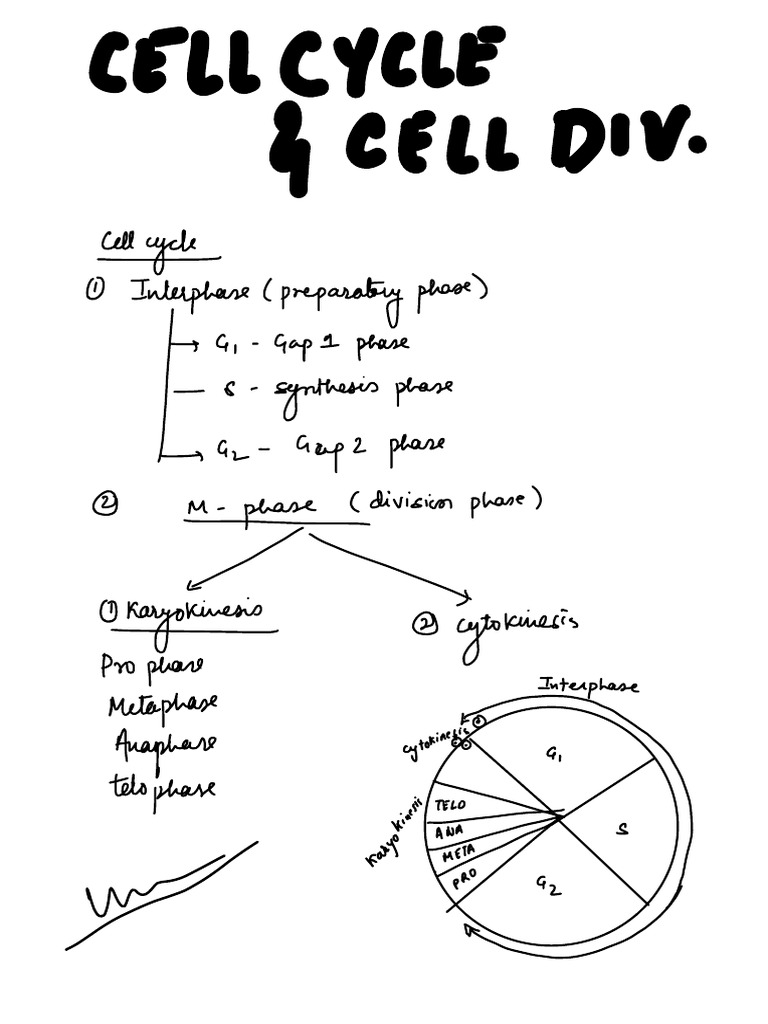 CELL CYCLE
& CELL DIV.
Cell cycle
① Interphase (preparatory phase)
G₁ - Gap 1 phase
S - synthesis phase
G₂ - Gap 2 phase
② M - phase (division phase)
① Karyokinesis
② Cytokinesis
Prophase
Metaphase
Anaphase
telophase
Interphase
Cytokinesis
Karyokinesis
G₁
S
G₂
TELO
ANA
META
PRO